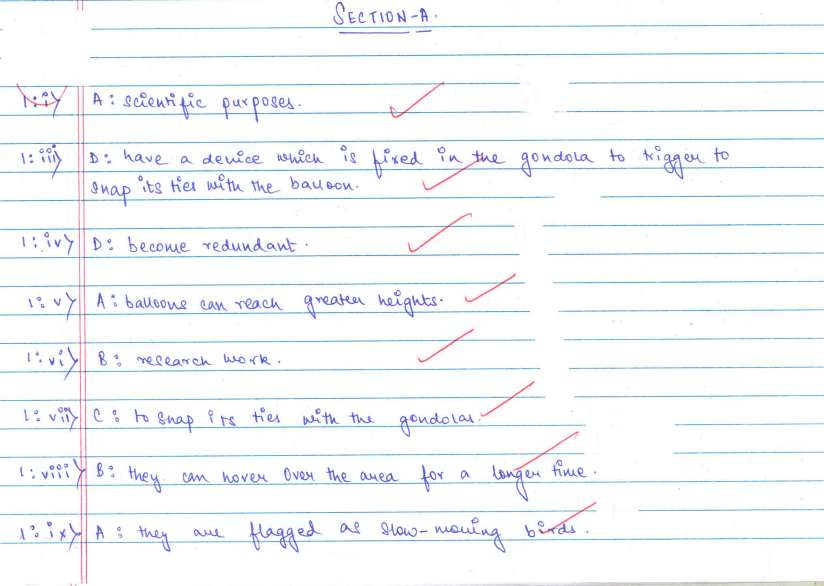 SECTION-A.
1:i) A: scientific purposes.
1:iii) D: have a device which is fixed in the gondola to trigger to
snap its ties with the balloon.
1:iv) D: become redundant.
1:v) A: balloons can reach greater heights.
1:vi) B: research work.
1:vii) C: to snap its ties with the gondolas.
1:viii) B: they can hover over the area for a longer time.
1:ix) A: they are flagged as slow-moving birds.